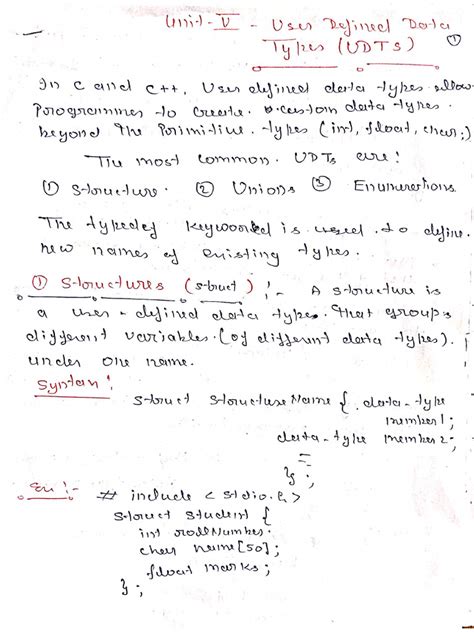 Unit-V - User Defined Data
Types (UDTs)
①
In C and C++, User defined data types allow
Programmers to create custom data types
beyond the Primitive types (int, float, char,)
The most common UDTs are:
① Structure ② Unions ③ Enumerations
The typedef keyword is used to define
new names of existing types.
① Structures (struct) :- A structure is
a user-defined data types that groups
different variables (of different data types)
under one name.
Syntax:
struct StructureName { data-type
member1;
data-type member2;
};
Ex :- # include < stdio.h >
struct student {
int rollNumber;
char name[50];
float marks;
};